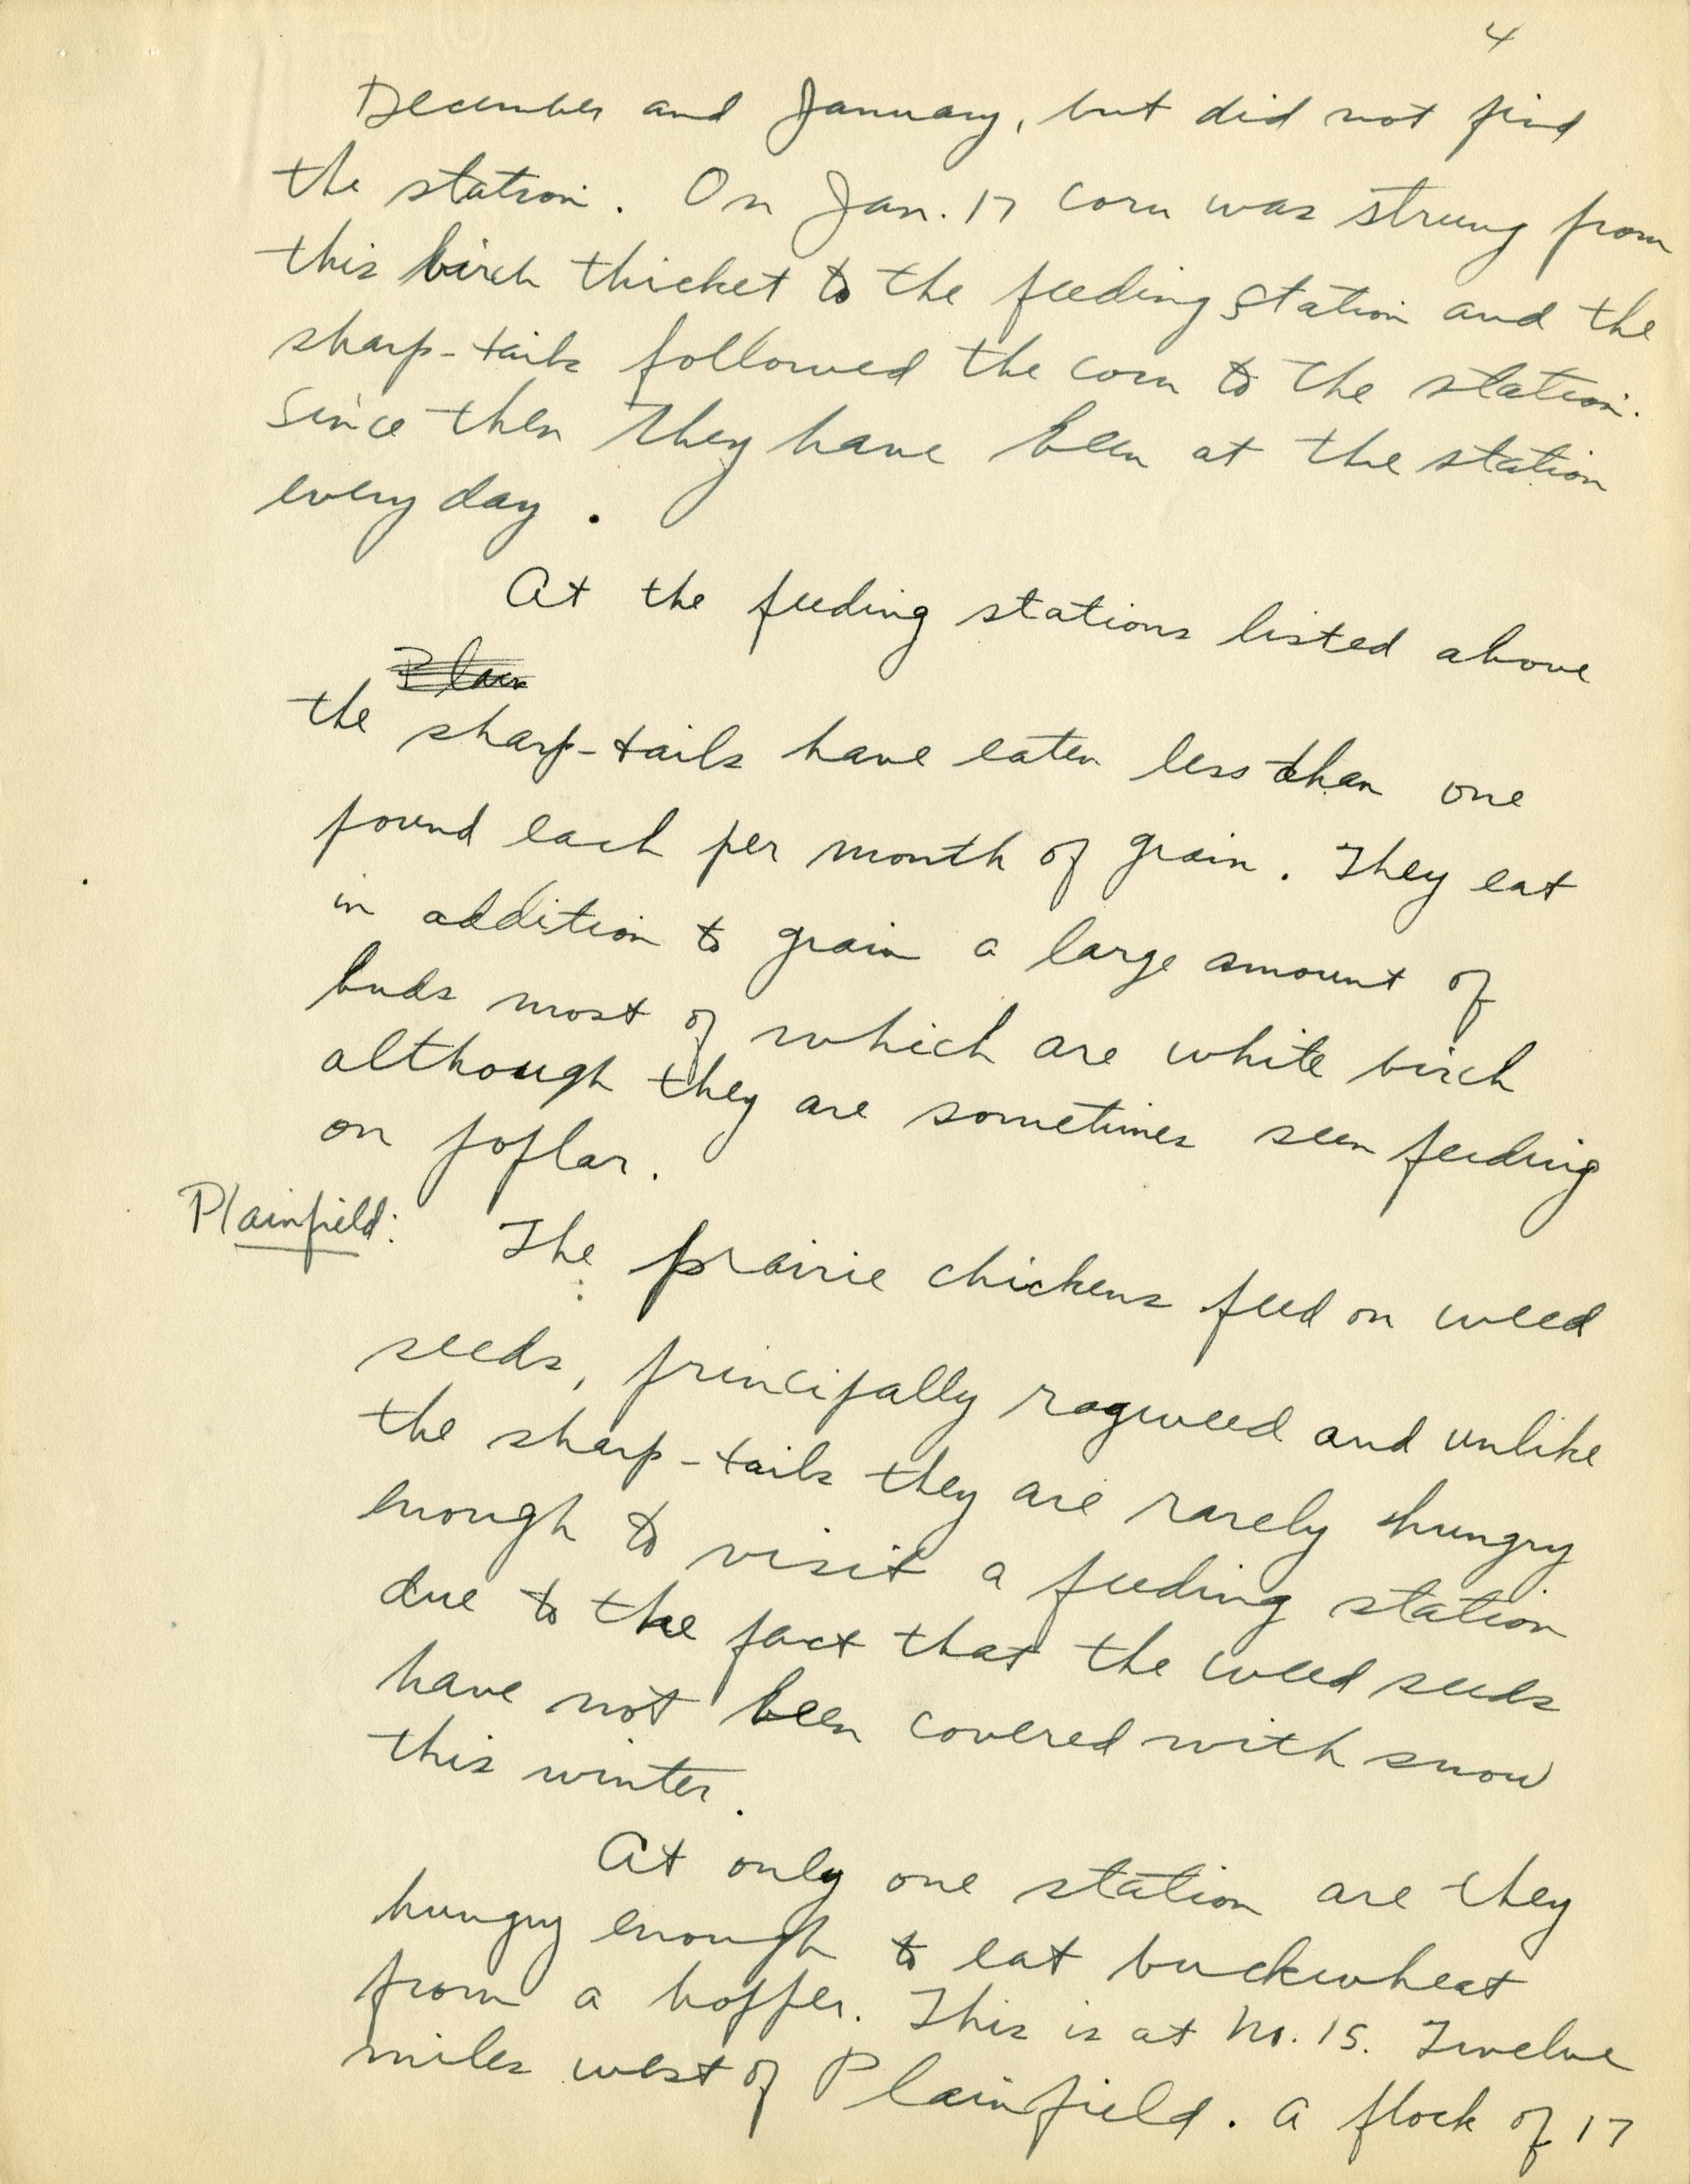 4
December and January, but did not find
the station. On Jan. 17 corn was strung from
this birch thicket to the feeding station and the
sharp-tails followed the corn to the station.
Since then they have been at the station
every day.
At the feeding stations listed above
Plain
the sharp-tails have eaten less than one
pound each per month of grain. They eat
in addition to grain a large amount of
buds most of which are white birch
although they are sometimes seen feeding
on poplar.
Plainfield: The prairie chickens feed on weed
seeds, principally ragweed and unlike
the sharp-tails they are rarely hungry
enough to visit a feeding station
due to the fact that the weed seeds
have not been covered with snow
this winter.
At only one station are they
hungry enough to eat buckwheat
from a hopper. This is at No. 15. Twelve
miles west of Plainfield. A flock of 17